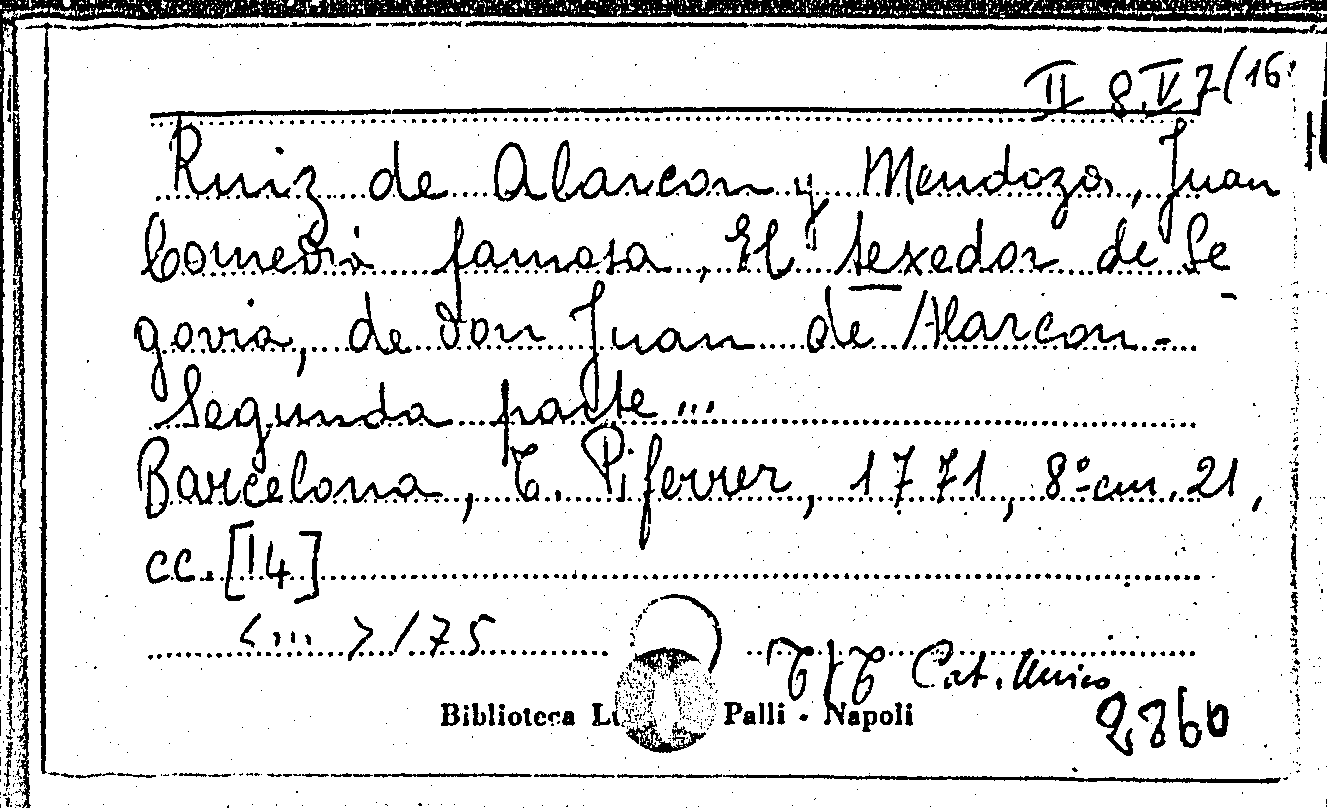 II 8.V 7/16
Ruiz de Alarcon y Mendoza, Juan
Comedia famosa, El texedor de Se
govia, de don Juan de Alarcon -
Segunda parte ...
Barcelona, T. Piferrer, 1771, 8º cm. 21,
cc. [14]
< ... > / 75
T/T Cat. Unico
Biblioteca Lu Palli - Napoli
2860